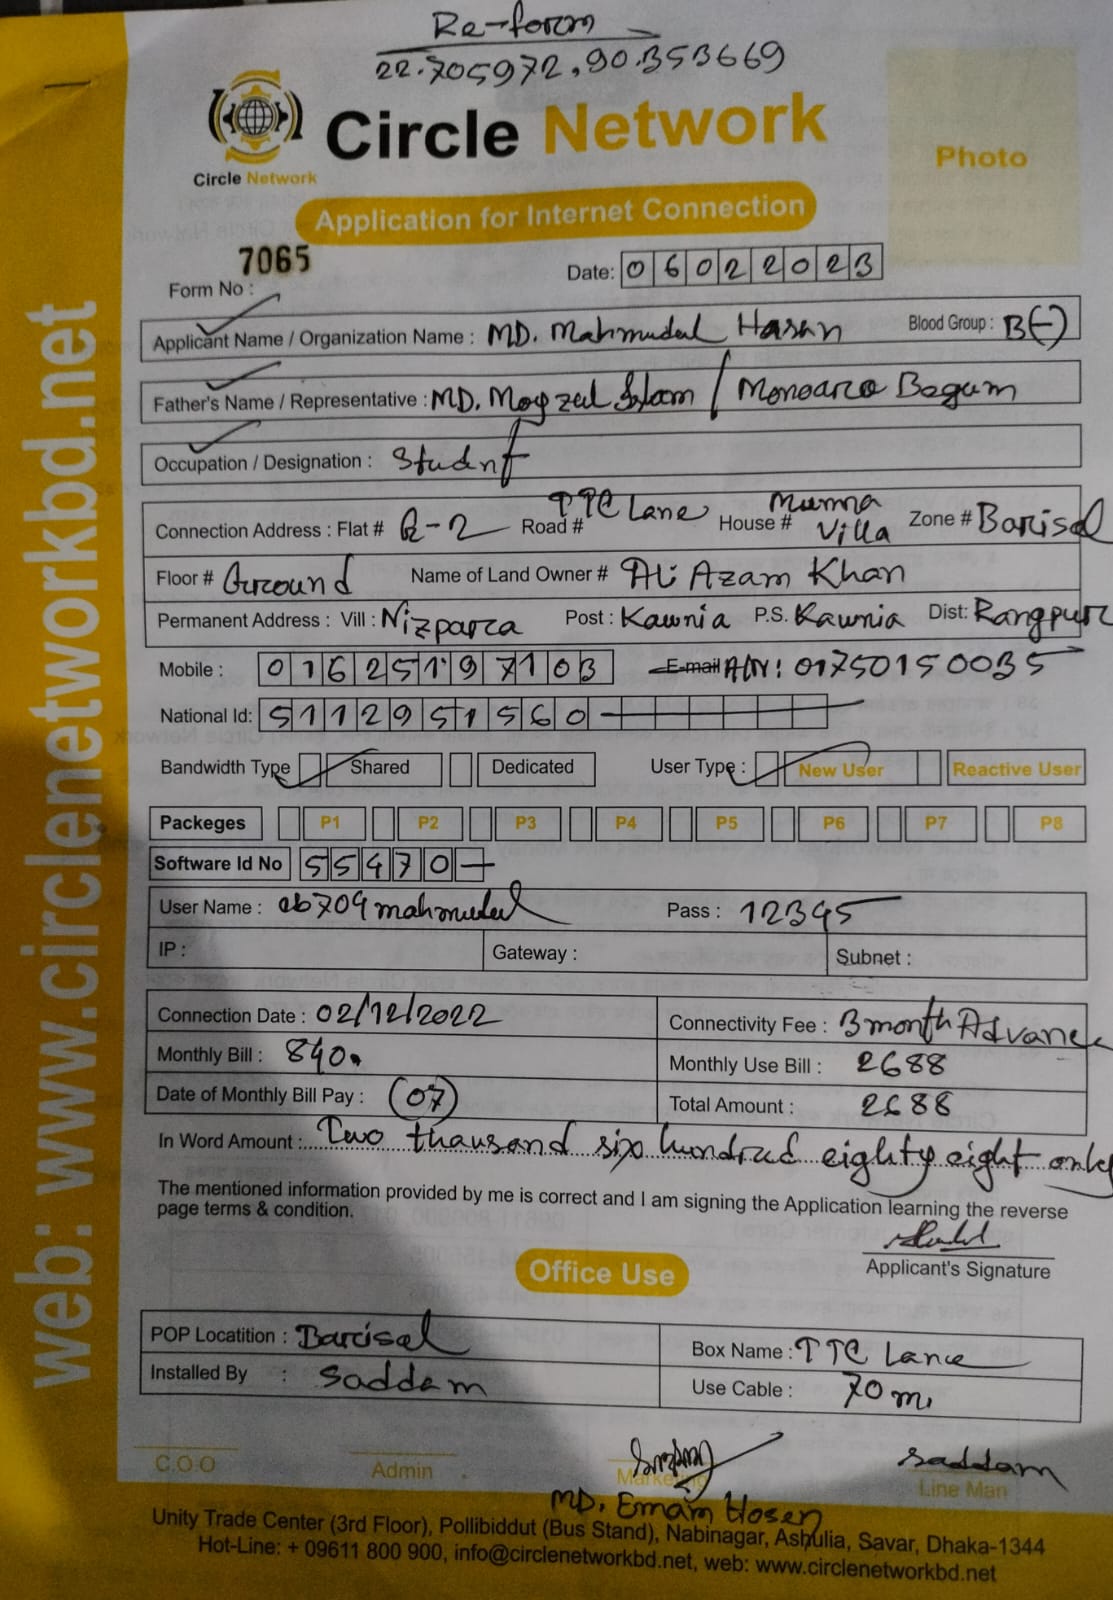 Re-form
22.705972,90.353669
Circle Network
Circle Network
Photo
Application for Internet Connection
7065
Form No :
Date: 06022023
Applicant Name / Organization Name : MD. Mahmudul Hasan Blood Group : B(-)
Father's Name / Representative : MD. Moyzul Islam / Monoara Begum
Occupation / Designation : Studnt
Connection Address : Flat # B-2 Road # TTC Lane House # Munna Villa Zone # Barisal
Floor # Ground Name of Land Owner # Ali Azam Khan
Permanent Address : Vill : Nizpara Post : Kawnia P.S. Kawnia Dist: Rangpur
Mobile : 01625197103 E-mail Altr: 01750150035
National Id: 5112951560
Bandwidth Type Shared Dedicated User Type : New User Reactive User
Packeges P1 P2 P3 P4 P5 P6 P7 P8
Software Id No 55470
User Name : cb709mahmudul Pass : 12345
IP : Gateway : Subnet :
Connection Date : 02/12/2022 Connectivity Fee : 3 month Advance
Monthly Bill : 840. Monthly Use Bill : 2688
Date of Monthly Bill Pay : (07) Total Amount : 2688
In Word Amount : Two thausand six hundred eighty eight only
The mentioned information provided by me is correct and I am signing the Application learning the reverse
page terms & condition.
Applicant's Signature
Office Use
POP Locatition : Barisal Box Name : TTC Lane
Installed By : Saddam Use Cable : 70 m.
C.O.O Admin Marketing Saddam Line Man
MD. Emam Hosen
Unity Trade Center (3rd Floor), Pollibiddut (Bus Stand), Nabinagar, Ashulia, Savar, Dhaka-1344
Hot-Line: + 09611 800 900, info@circlenetworkbd.net, web: www.circlenetworkbd.net
web: www.circlenetworkbd.net